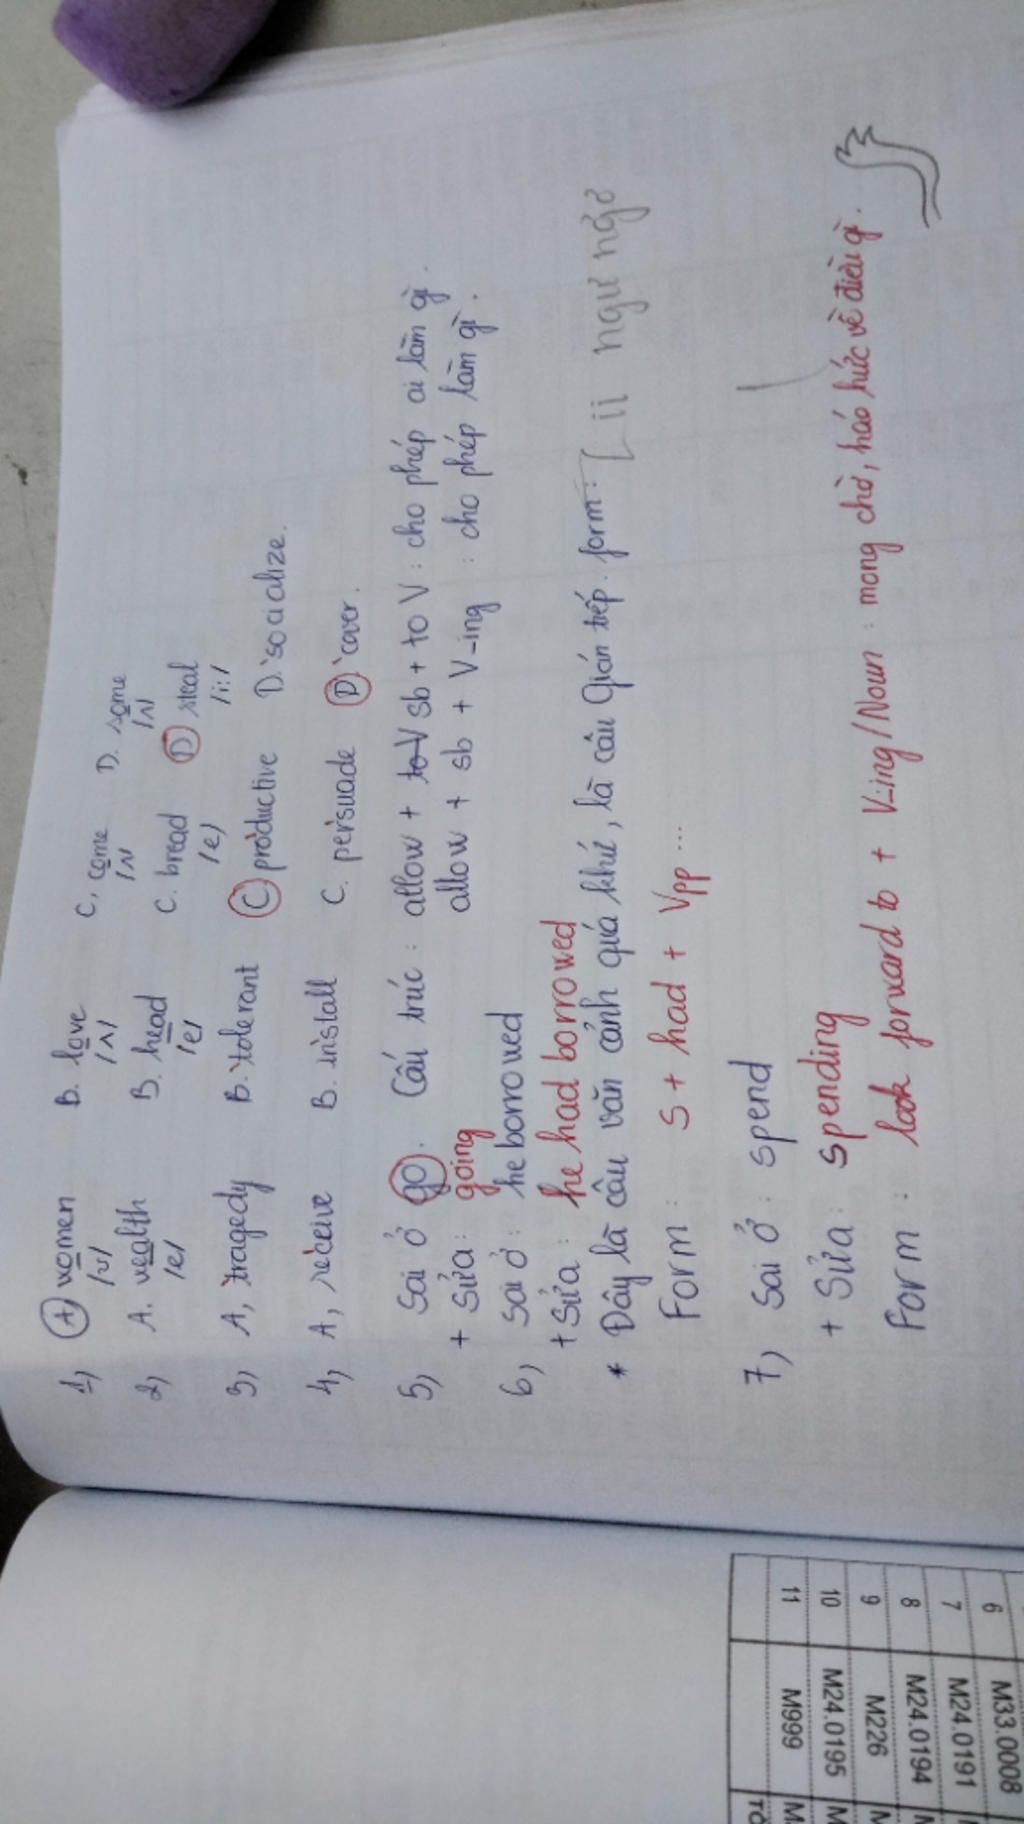 1, A women B. love C, come D. some
/ʊ/ /ʌ/ /ʌ/ /ʌ/
2, A. wealth B. head C. bread D steal
/e/ /e/ /e/ /i:/
3, A, 'tragedy B. 'tolerant C pro'ductive D. 'socialize.
4, A, re'ceive B. in'stall C. per'suade D 'cover.
5, Sai ở go. Cấu trúc : allow + to V sb + to V : cho phép ai làm gì.
+ Sửa : going allow + sb + V-ing : cho phép làm gì.
6, Sai ở : he borrowed
+ Sửa : he had borrowed
* Đây là câu văn cảnh quá khứ, là câu gián tiếp. form: [ ii ngư ngơ
Form : S + had + Vpp ...
7, Sai ở : spend
+ Sửa : spending
Form : look forward to + V-ing/Noun : mong chờ, háo hức về điều gì.
6 M33.0008
7 M24.0191
8 M24.0194
9 M226 M
10 M24.0195 M
11 M999 M